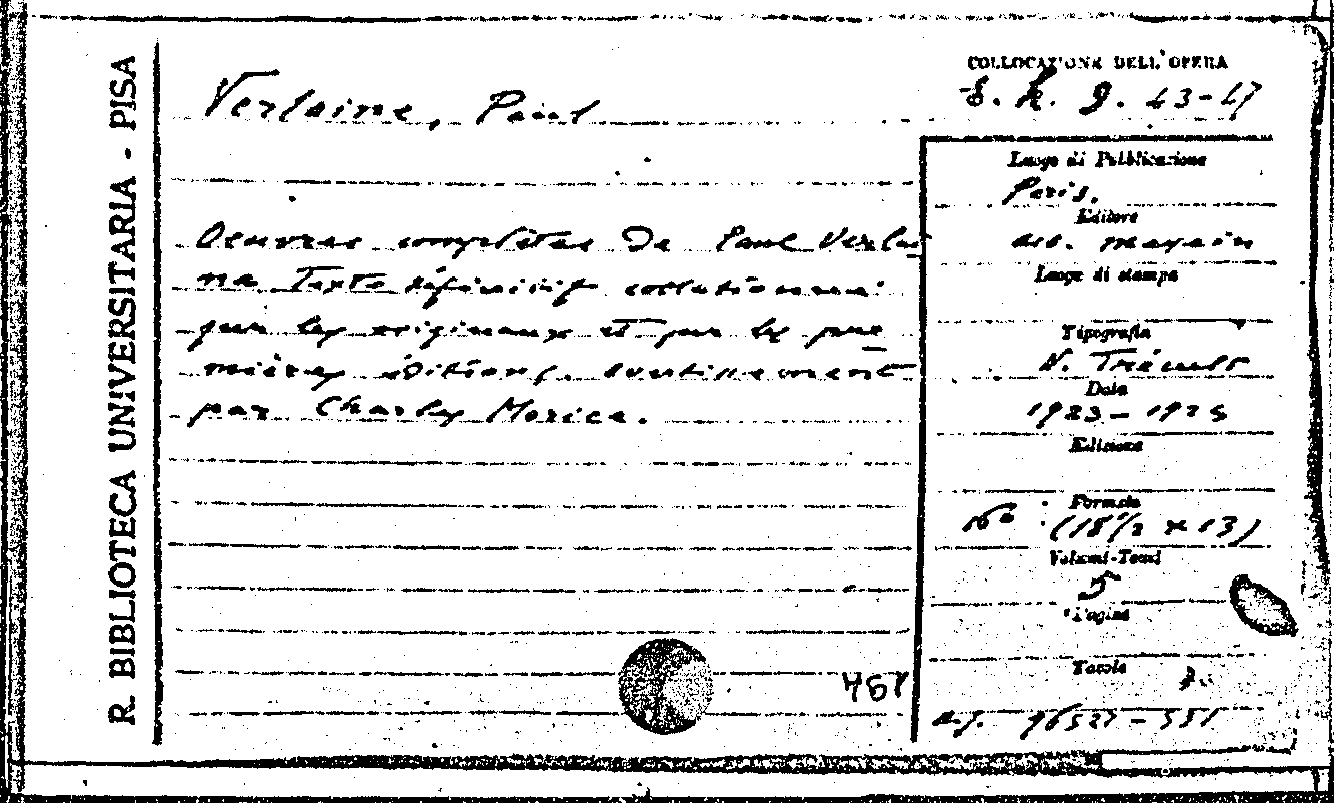 R. BIBLIOTECA UNIVERSITARIA - PISA
COLLOCAZIONE DELL'OPERA
43-47
Verlaine, Paul
Oeuvres complètes de Paul Verlai
ne Texte définitif collationné
sur les originaux et sur les pre
mières éditions. avertissement
par Charles Morice.
Luogo di Pubblicazione
Paris,
Editore
Luogo di stampa
Tipografia
Data
1923-1926
Edizione
Formato
16° (18 1/2 x 13)
Volumi-Tomi
5
Pagine
Tavole